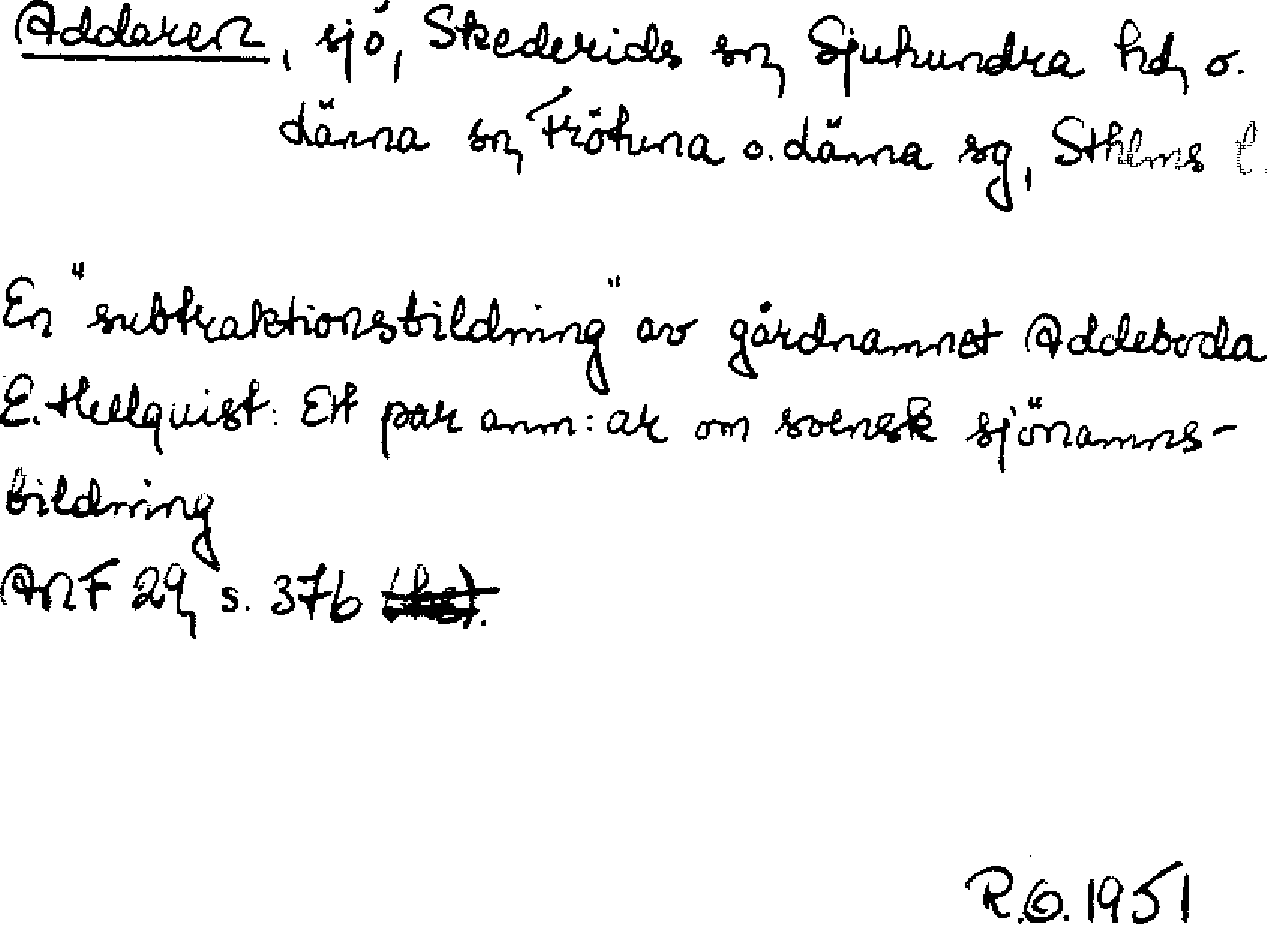 Addaren, sjö, Skederids sn, Sjuhundra hd, o.
Länna sn, Frötuna o. Länna sg, Sthlms l.
En "subtraktionsbildning" av gårdnamnet Addeboda
E. Hellquist: Ett par anm:ar om svensk sjönamns-
bildning
ANF 29, s. 376
R.O. 1951